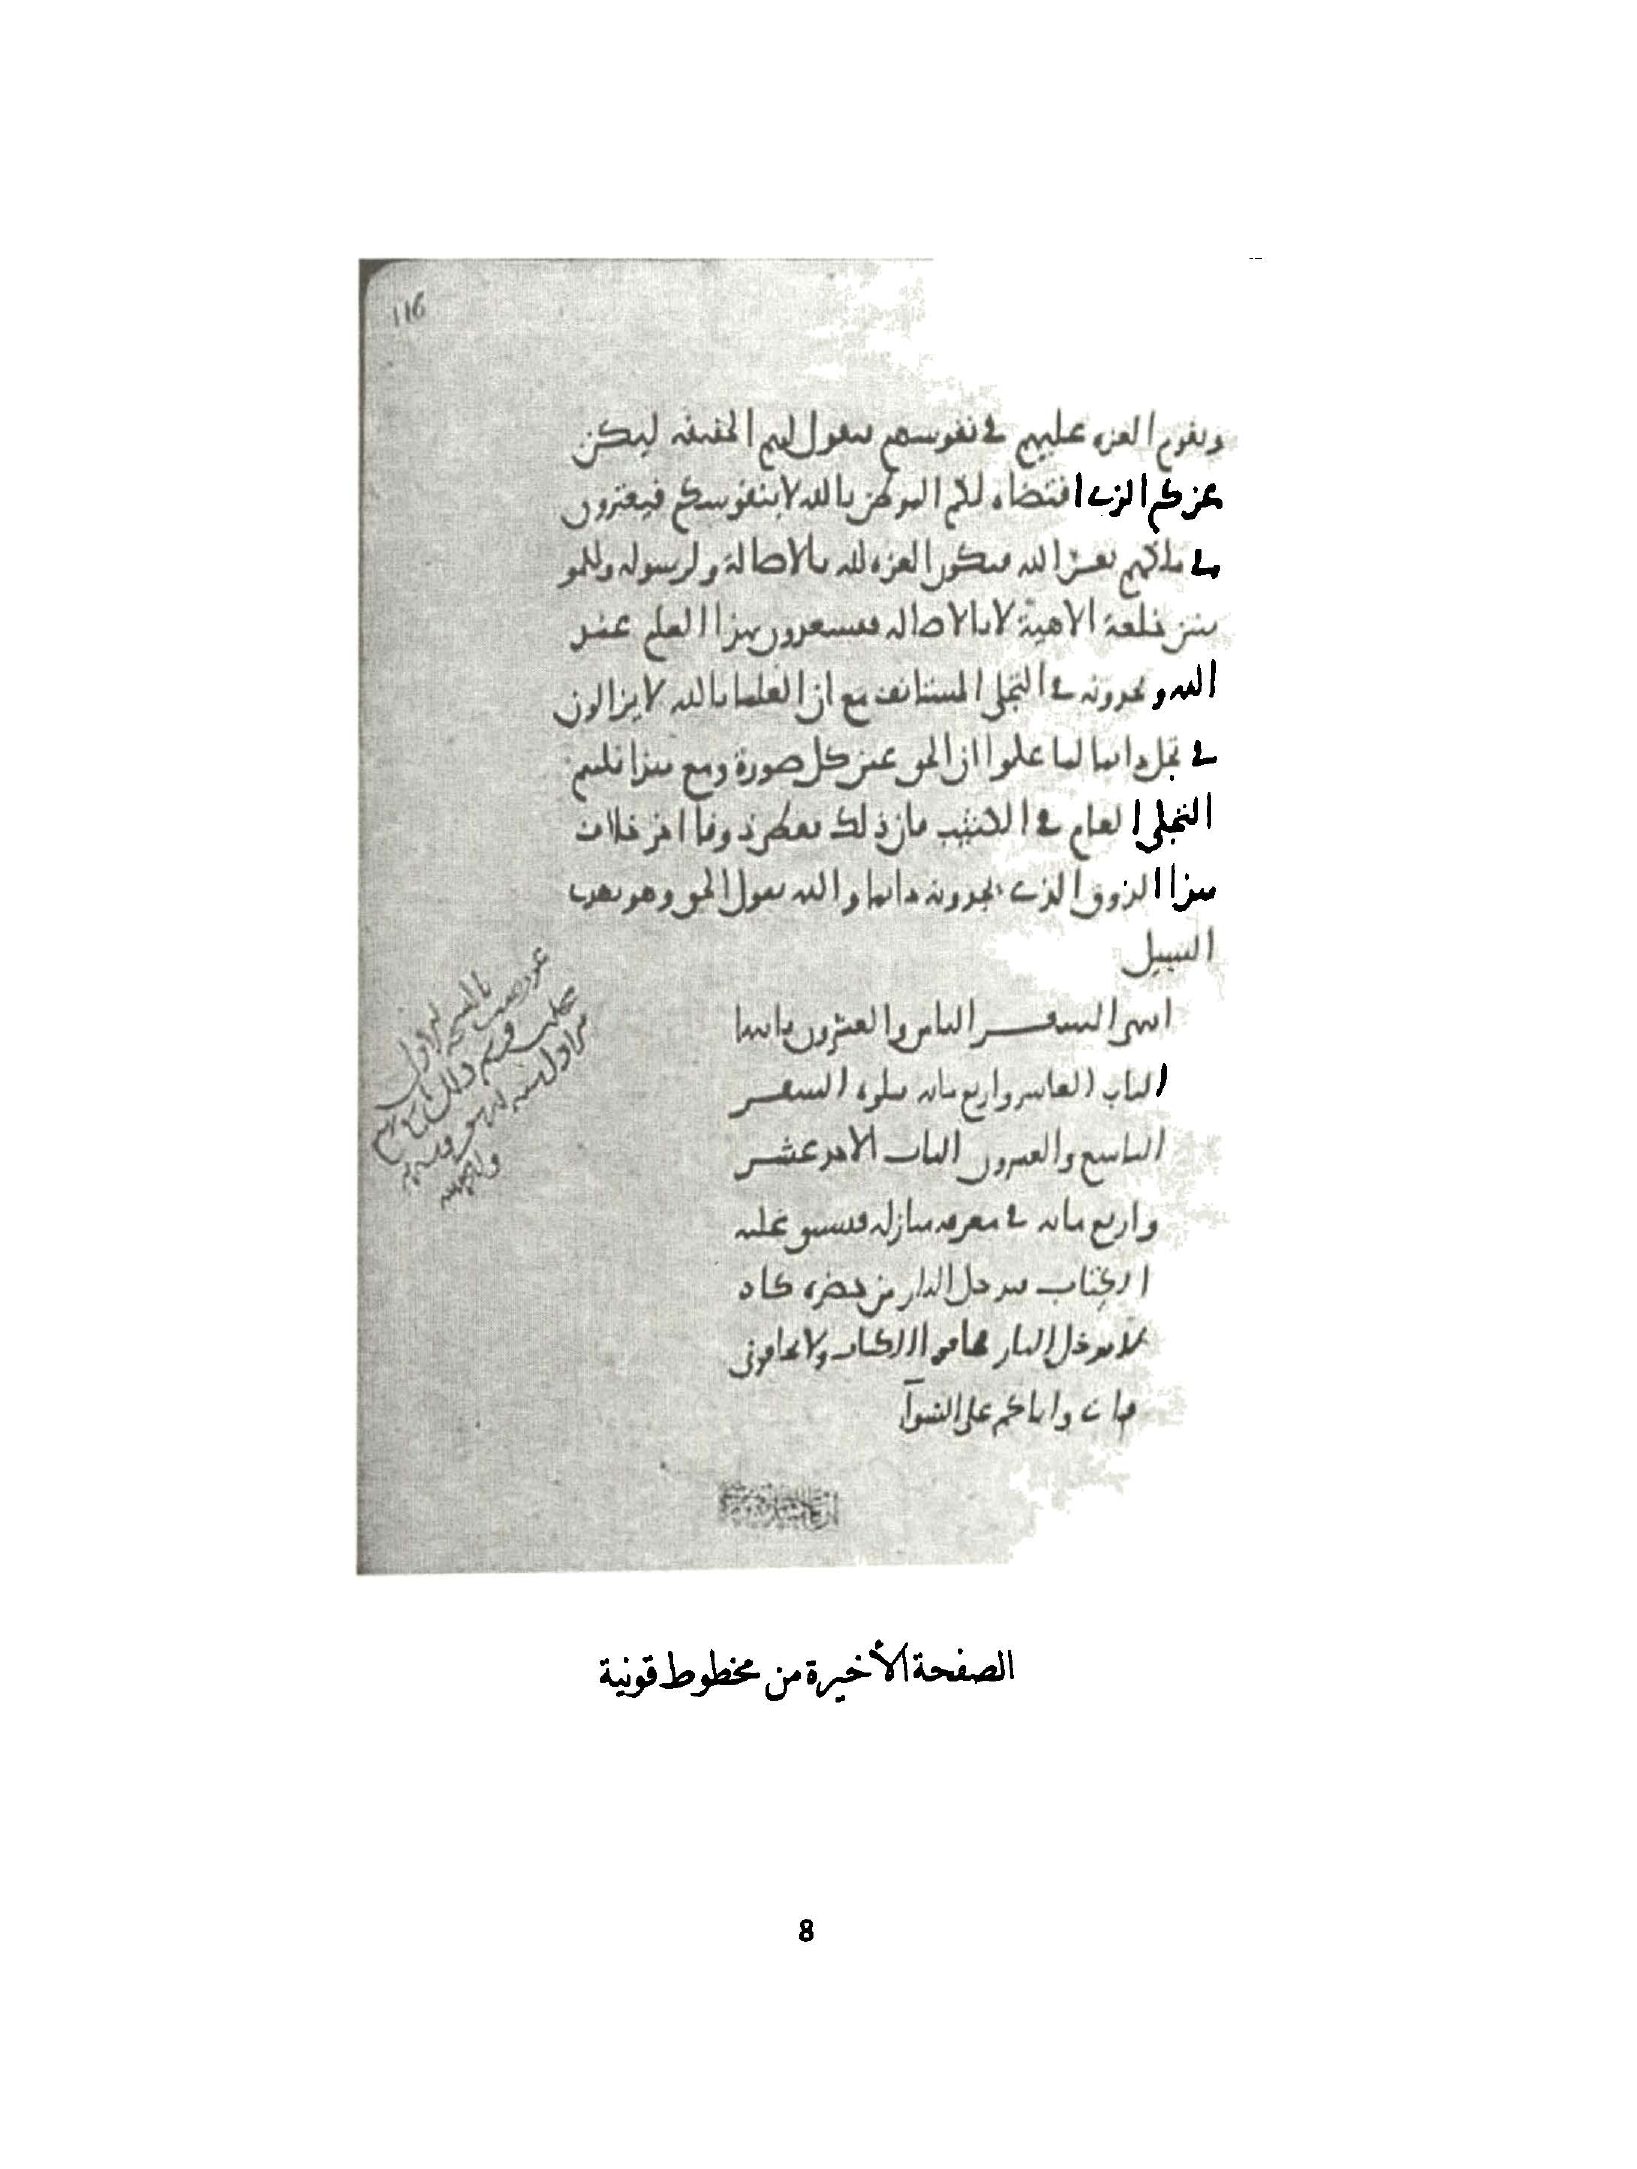 116
وتقوم العزه عليهم في نفوسهم فيقول لهم الحقيقه ليكن
عزكم الذي اقتضاه لكم الموطن بالله لا بنفوسكم فيعتزون
في ذلكم بعز الله فيكون العزه لله بالاصالة ولرسوله وللمو
منين خلعة الاهية لا بالاصاله فيسعدون بهذا العلم عند
الله ويجدونه في التجلي المستانف مع ان العلما بالله لا يزالون
في تجل دايما لما علموا ان الحق عين كل صورة ومع هذا فلهم
التجلي العام في الكثيب فان ذلك يعطى ذوقا اخر خلاف
هذا الذوق الذي يجدونه دايما والله يقول الحق وهو يهدى
السبيل
انتهى السفر الثامن والعشرون بانتها
الباب العاشر واربع مائه يتلوه السفر
التاسع والعشرون الباب الاحد عشر
واربع مائه في معرفه منازله فيسبق عليه
الكتاب فيدخل النار من حضره كاد
لا يدخل النار فخافوا الكتاب ولا تخافوني
فاني واياكم على السوآ
الصفحة الأخيرة من مخطوط قونية
8